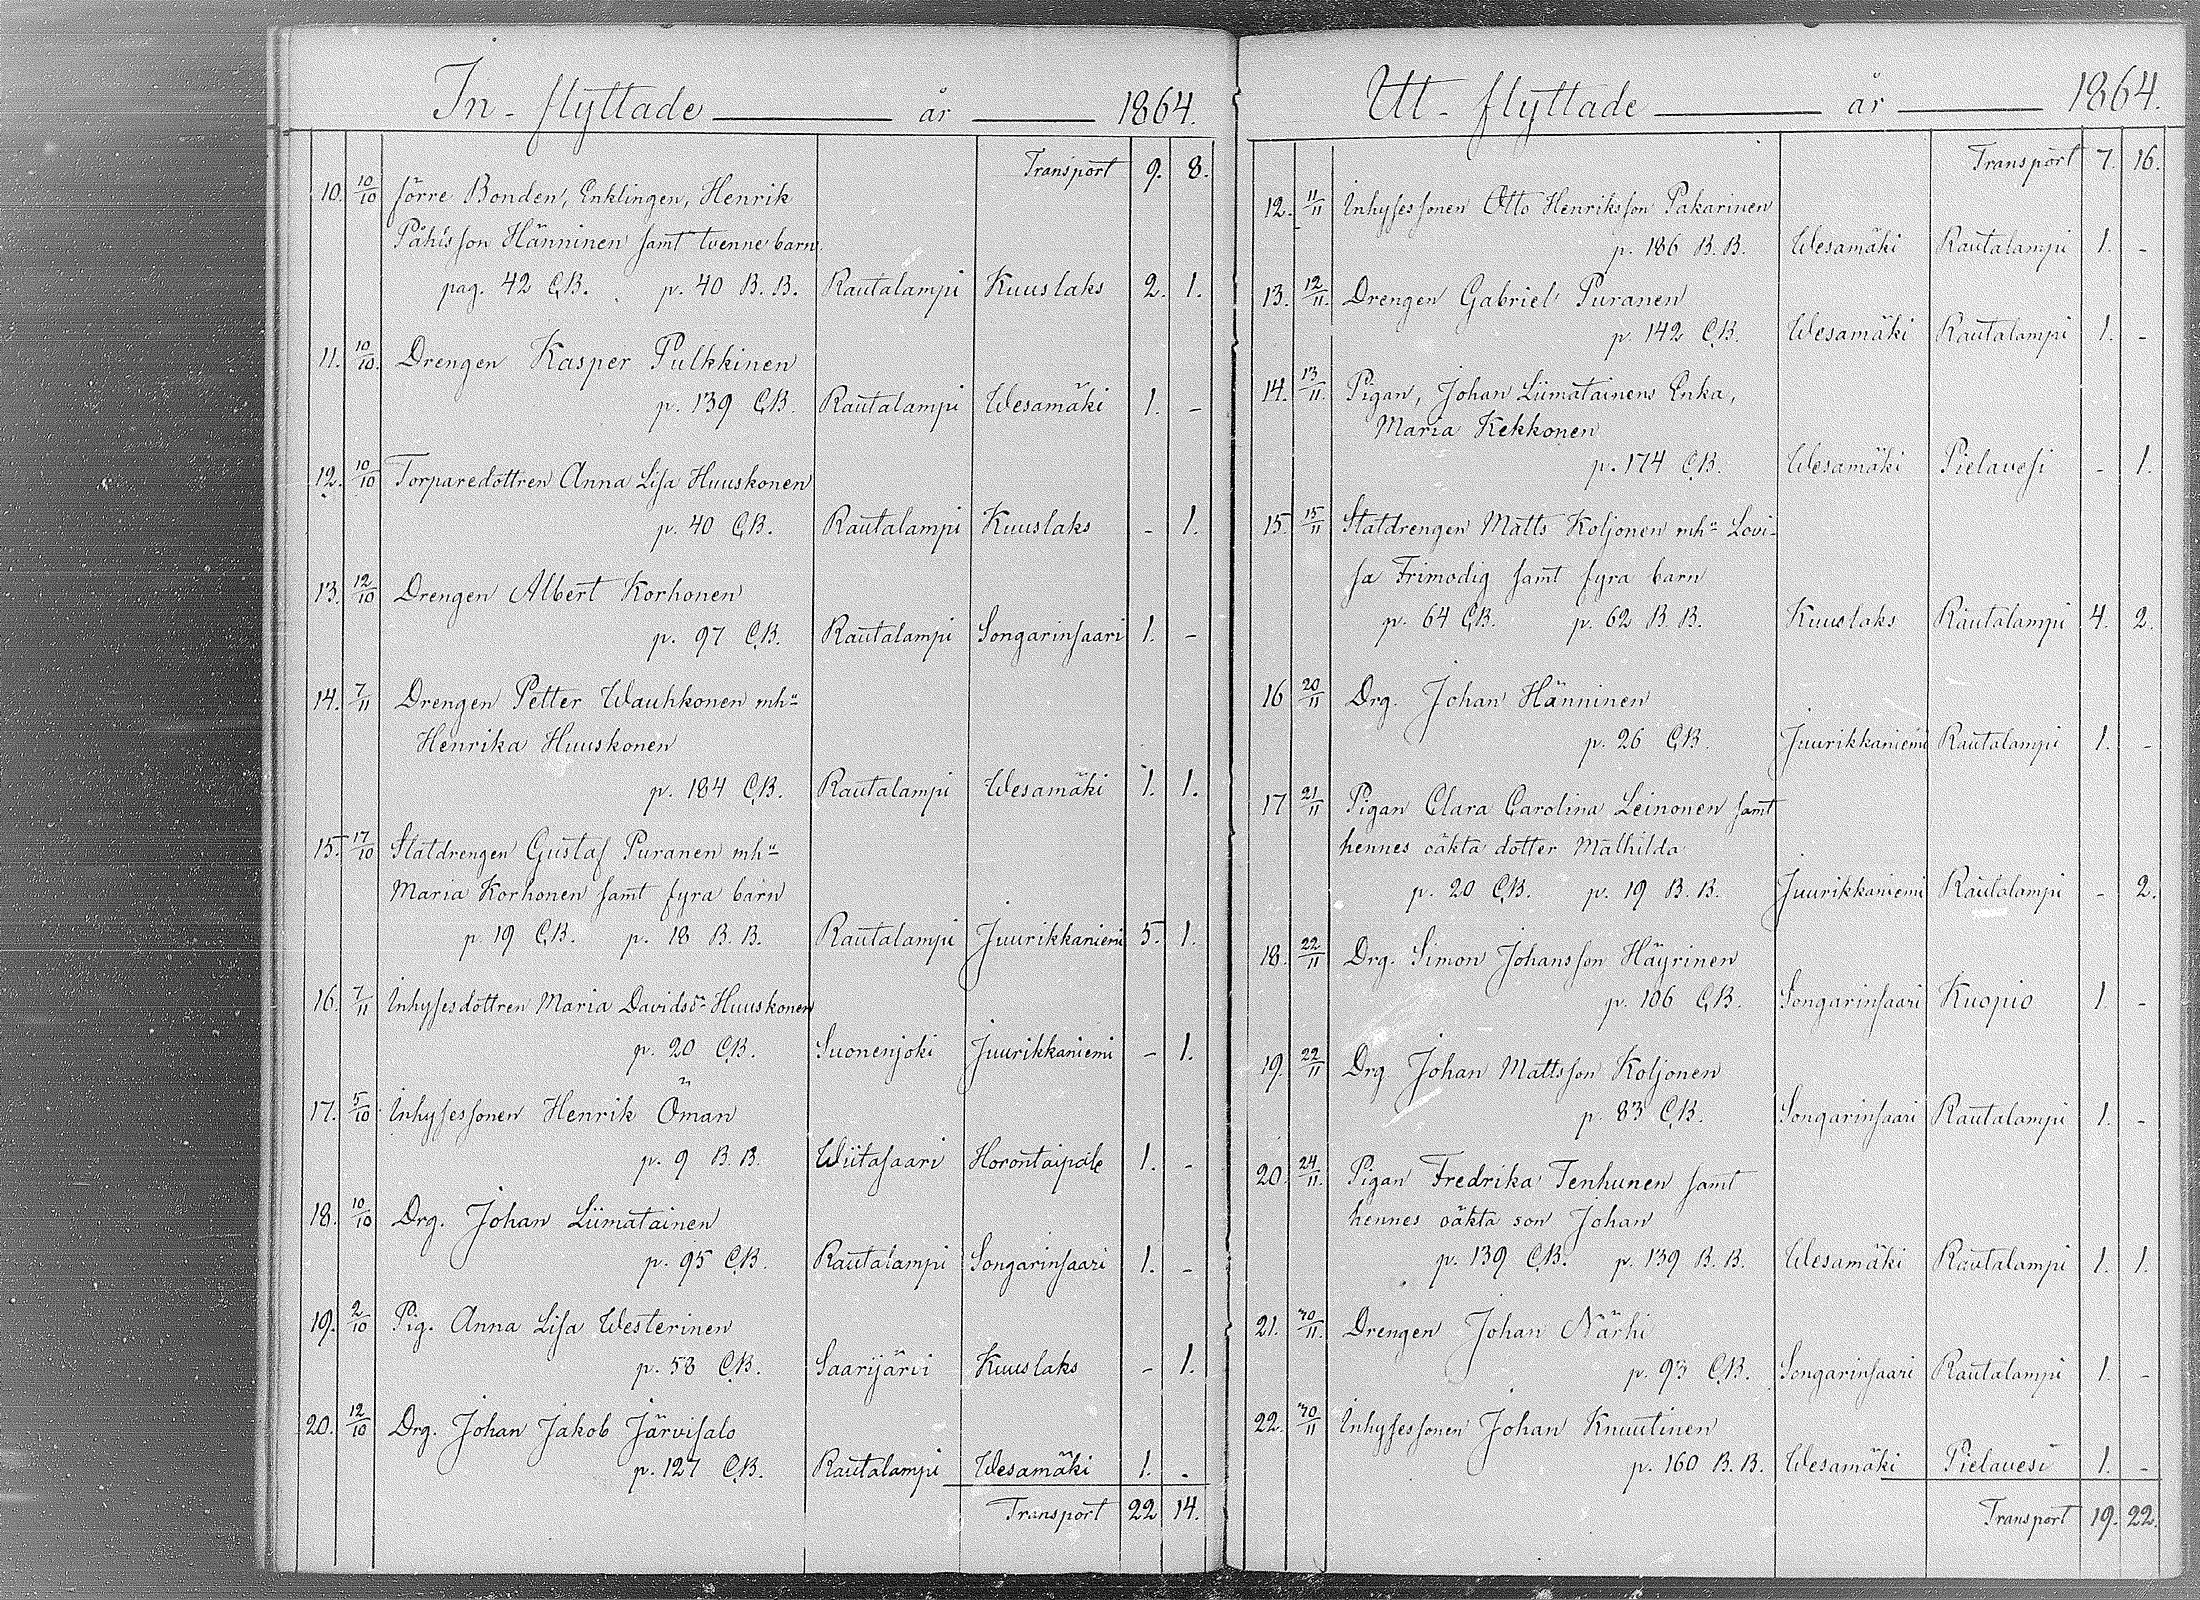 In-flyttade år 1864.
Transport 9. 8.
10. 10/10 förre Bonden, Enklingen, Henrik
Påhlsson Hänninen samt tvenne barn
pag. 42 C.B. p. 40 B.B. Rautalampi Kuuslaks 2. 1.
11. 10/10. Drengen Kasper Pulkkinen
p. 139 C.B. Rautalampi Wesamäki 1. -
12. 10/10 Torparedottren Anna Lisa Huuskonen
p. 40 C.B. Rautalampi Kuuslaks - 1.
13. 12/10 Drengen Albert Korhonen
p. 97 C.B. Rautalampi Songarinsaari 1. -
14. 7/11 Drengen Petter Wauhkonen mh
Henrika Huuskonen
p. 184 C.B. Rautalampi Wesamäki 1. 1.
15. 17/10 Statdrengen Gustaf Puranen mh
Maria Korhonen samt fyra barn
p. 19 C.B. p. 18 B.B. Rautalampi Juurikkaniemi 5. 1.
16. 7/11 Inhysesdottren Maria Davidsd Huuskonen
p. 20 C.B. Suonenjoki Juurikkaniemi - 1.
17. 5/10 Inhysessonen Henrik Öman
p. 9 B.B. Wiitasaari Horontaipale 1. -
18. 10/10 Drg. Johan Liimatainen
p. 95 C.B. Rautalampi Songarinsaari 1. -
19. 2/10 Pig. Anna Lisa Westerinen
p. 58 C.B. Saarijärvi Kuuslaks - 1.
20. 12/10 Drg. Johan Jakob Järvisalo
p. 127 C.B. Rautalampi Wesamäki 1. -
Transport 22 14.
Ut-flyttade år 1864.
Transport 7. 16.
12. 11/11 Inhysessonen Otto Henriksson Pakarinen
p. 186 B.B. Wesamäki Rautalampi 1. -
13. 12/11. Drengen Gabriel Puranen
p. 142 C.B. Wesamäki Rautalampi 1. -
14. 13/11. Pigan, Johan Liimatainens Enka,
Maria Kekkonen
p. 174 C.B. Wesamäki Pielavesi - 1.
15 15/11 Statdrengen Matts Koljonen mh Lovi-
sa Frimodig samt fyra barn
p. 64 C.B. p. 62 B.B. Kuuslaks Rautalampi 4. 2.
16 20/11 Drg. Johan Hänninen
p. 26 C.B. Juurikkaniemi Rautalampi 1. -
17 21/11 Pigan Clara Carolina Leinonen samt
hennes oäkta dotter Mathilda
p. 20 C.B. p. 19 B.B. Juurikkaniemi Rautalampi - 2.
18. 22/11 Drg. Simon Johansson Häyrinen
p. 106 C.B. Songarinsaari Kuopio 1. -
19. 22/11 Drg Johan Mattsson Koljonen
p. 83 C.B. Songarinsaari Rautalampi 1. -
20. 24/11. Pigan Fredrika Tenhunen samt
hennes oäkta son Johan
p. 139 C.B. p. 139 B.B. Wesamäki Rautalampi 1. 1.
21. 30/11. Drengen Johan Närhi
p. 93 C.B. Songarinsaari Rautalampi 1. -
22. 30/11 Inhysessonen Johan Knuutinen
p. 160 B.B. Wesamäki Pielavesi 1. -
Transport 19. 22.